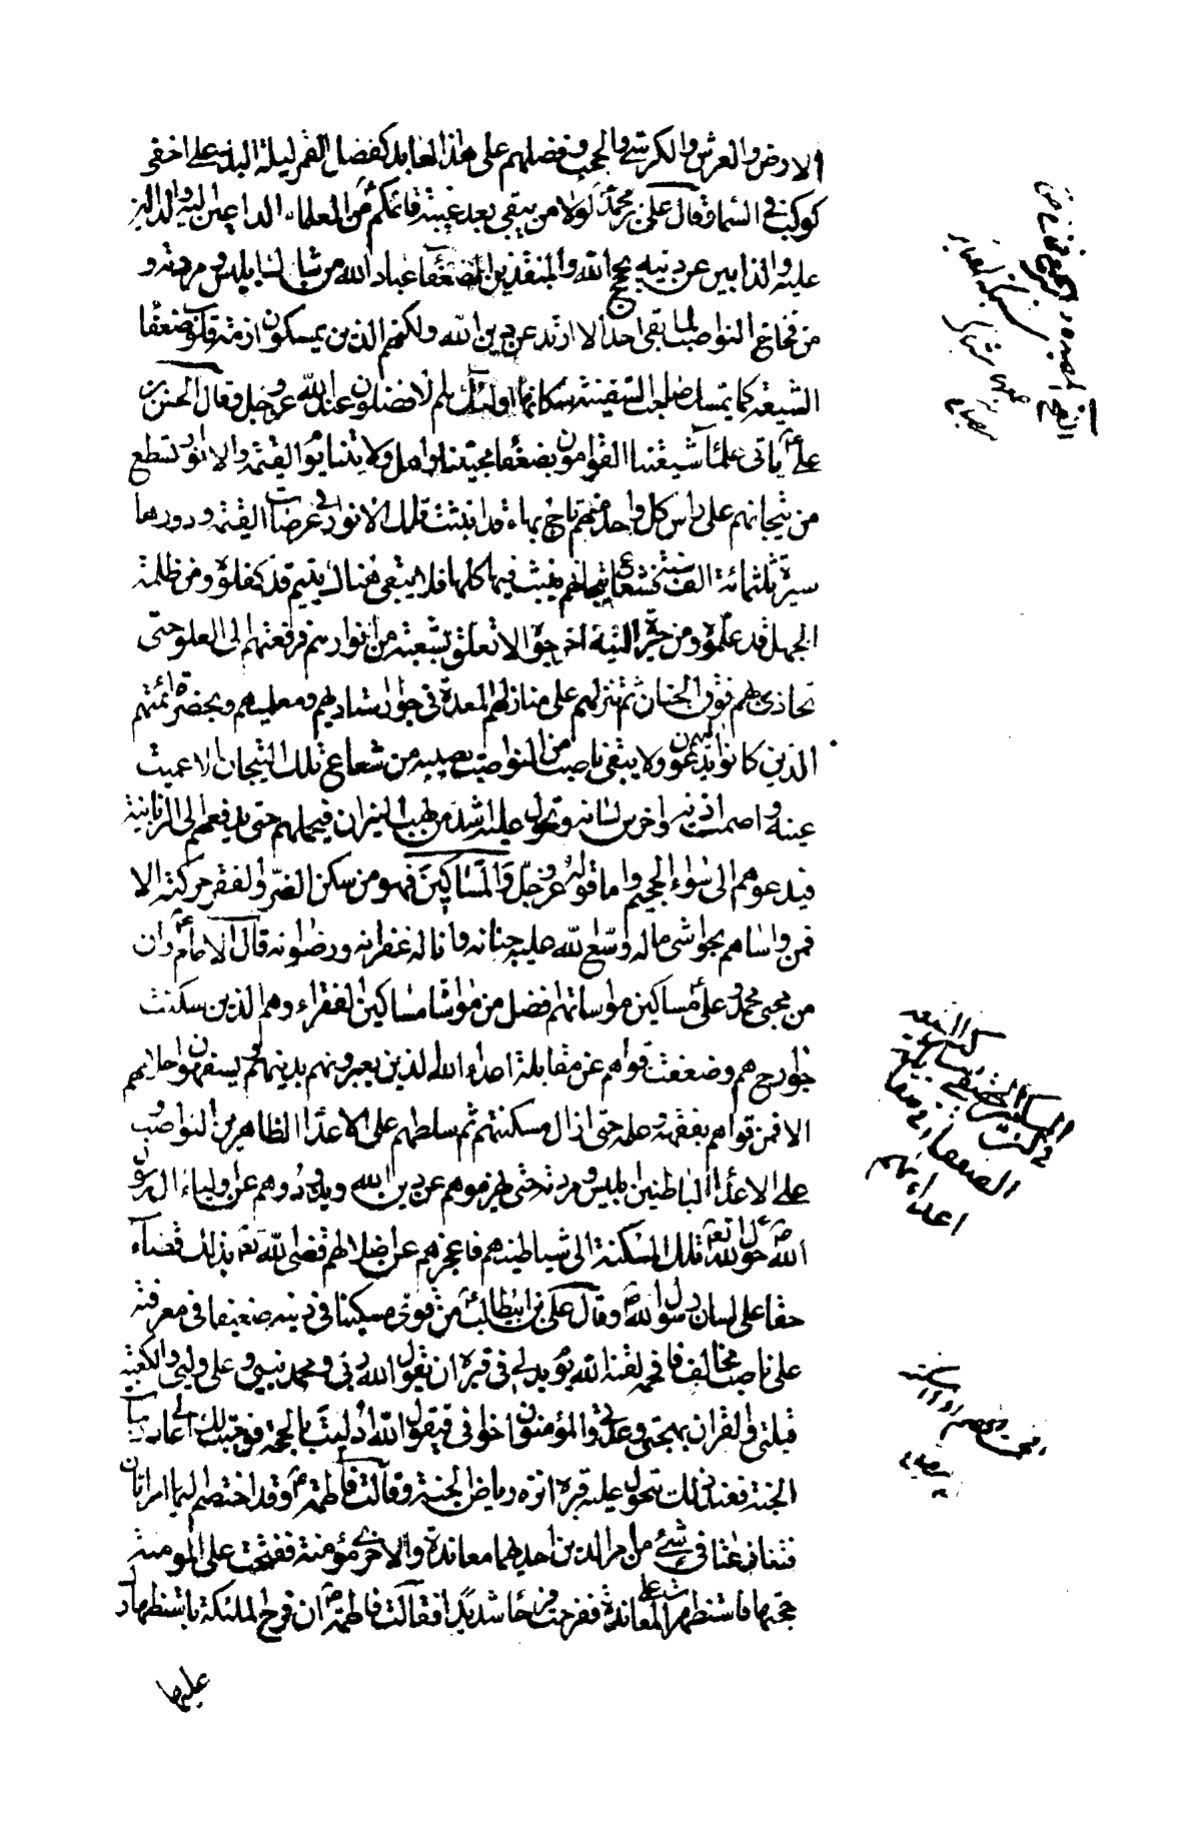 الارض والعرش والكرسي والحجب وفضلهم على هذا العابد كفضل القمر ليلة البدر على اخفى
كوكب في السماء وقال علي بن محمد لولا من يبقى بعد غيبة قائمكم من العلماء الداعين اليه والدالين
عليه والذابين عن دينه بحجج الله والمنقذين لضعفاء عباد الله من شباك ابليس ومردته و
من فخاخ النواصب لما بقى احد الا ارتد عن دين الله ولكنهم الذين يمسكون ازمة قلوب ضعفاء
الشيعة كما يمسك صاحب السفينة سكانها اولئك هم الافضلون عند الله عز وجل وقال الحسن بن
علي ياتى علماء شيعتنا القوامون بضعفاء محبينا واهل ولايتنا يوم القيمة والانوار تسطع
من تيجانهم على راس كل واحد منهم تاج بهاء قد انبثت تلك الانوار في عرصات القيمة ودورها
مسيرة ثلثمائة الف سنة فشعاع تيجانهم ينبث فيها كلها فلا يبقى هناك يتيم قد كفلوه ومن ظلمة
الجهل قد علموه ومن حيرة التيه اخرجوه الا تعلق بشعبة من انوارهم فرفعتهم الى العلو حتى
تحاذى بهم فوق الجنان ثم تنزلهم على منازلهم المعدة في جوار استاديهم ومعلميهم وبحضرة ائمتهم
الذين كانوا اليهم يدعون ولا يبقى ناصب من النواصب يصيبه من شعاع تلك التيجان الا عميت
عينه واصمت اذنه واخرس لسانه وتحول عليه اشد من لهب النيران فيحملهم حتى يدفعهم الى الزبانية
فيدعوهم الى سواء الجحيم واما قوله عز وجل والمساكين فهو من سكن الضر والفقر حركته الا
فمن واساهم بحواشى ماله وسع الله عليه جنانه وانا له غفرانه ورضوانه قال الامام وان
من محبي محمد وعلي مساكين مواساتهم افضل من مواساة مساكين الفقراء وهم الذين سكنت
جوارحهم وضعفت قواهم عن مقابلة اعداء الله الذين يعيرونهم بدينهم ويسفهون احلامهم
الا فمن قواهم بفقهه وعلمه حتى ازال مسكنتهم ثم سلطهم على الاعداء الظاهرين النواصب و
على الاعداء الباطنين ابليس ومردته حتى يهزموهم عن دين الله ويذودوهم عن اولياء ال رسول
الله حول الله تع تلك المسكنة الى شياطينهم فاعجزهم عن اضلالهم قضى الله تع بذلك قضاء
حقا على لسان رسول الله وقال علي بن ابيطالب من قوى مسكينا في دينه ضعيفا في معرفته
على ناصب مخالف فافحمه لقنه الله يوم يدلى في قبره ان يقول الله ربي ومحمد نبيي وعلي وليي والكعبة
قبلتي والقران بهجتي وعدتي والمؤمنون اخواني فيقول الله ادليت بالحجة فوجبت لك اعالي درجات
الجنة فعند ذلك يتحول عليه قبره انزه رياض الجنة وقالت فاطمة وقد اختصم اليها امراتان
فتنازعتا في شيء من امر الدين احديهما معاندة والاخرى مؤمنة ففتحت على المؤمنة
حجتها فاستظهرت على المعاندة ففرحت فرحا شديدا فقالت فاطمة ان فرح الملئكة باستظهارك
عليها